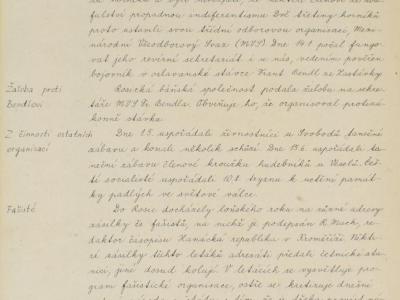 fulství propadnou indiferentismu Dvě třetiny horníků
proto ustavili svou třídní odborovou organisaci, Mezi-
národní Všeodborový Svaz (MVS) Dne 14.1 počal fungo-
vat jeho revírní sekretariát i u nás, vedením pověřen
bojovník v oslavanské stávce Frant Bendl ze Zastávky
Žaloba proti
Bendlovi
Rosická báňská společnost podala žalobu na sekre-
táře MVS Fr. Bendla. Obviňuje ho, že organisoval protizá-
konně stávku
Z činnosti ostatních
organisací
Dne 1.5. uspořádali živnostníci u Svobodů taneční
zábavu a konali několik schůzí. Dne 15.6. uspořádali ta-
neční zábavu členové kroužku hudebníků u Veselů. Češ-
ti socialisté uspořádali 10.8. tryznu k uctění památ-
ky padlých ve světové válce.
Fašisté
Do Rosic docházely loňského roku na různé adresy
zásilky fašistů, na nichž je podepsán R. Mach, re-
daktor časopisu Hanácká republika v Kroměříži Někte-
ré zásilky těchto letáků adresáti předali četnické sta-
nici, jiné dosud kolují. V letácích se vysvětluje pro-
gram fašistické organisace, ostře se kritisuje dnešní